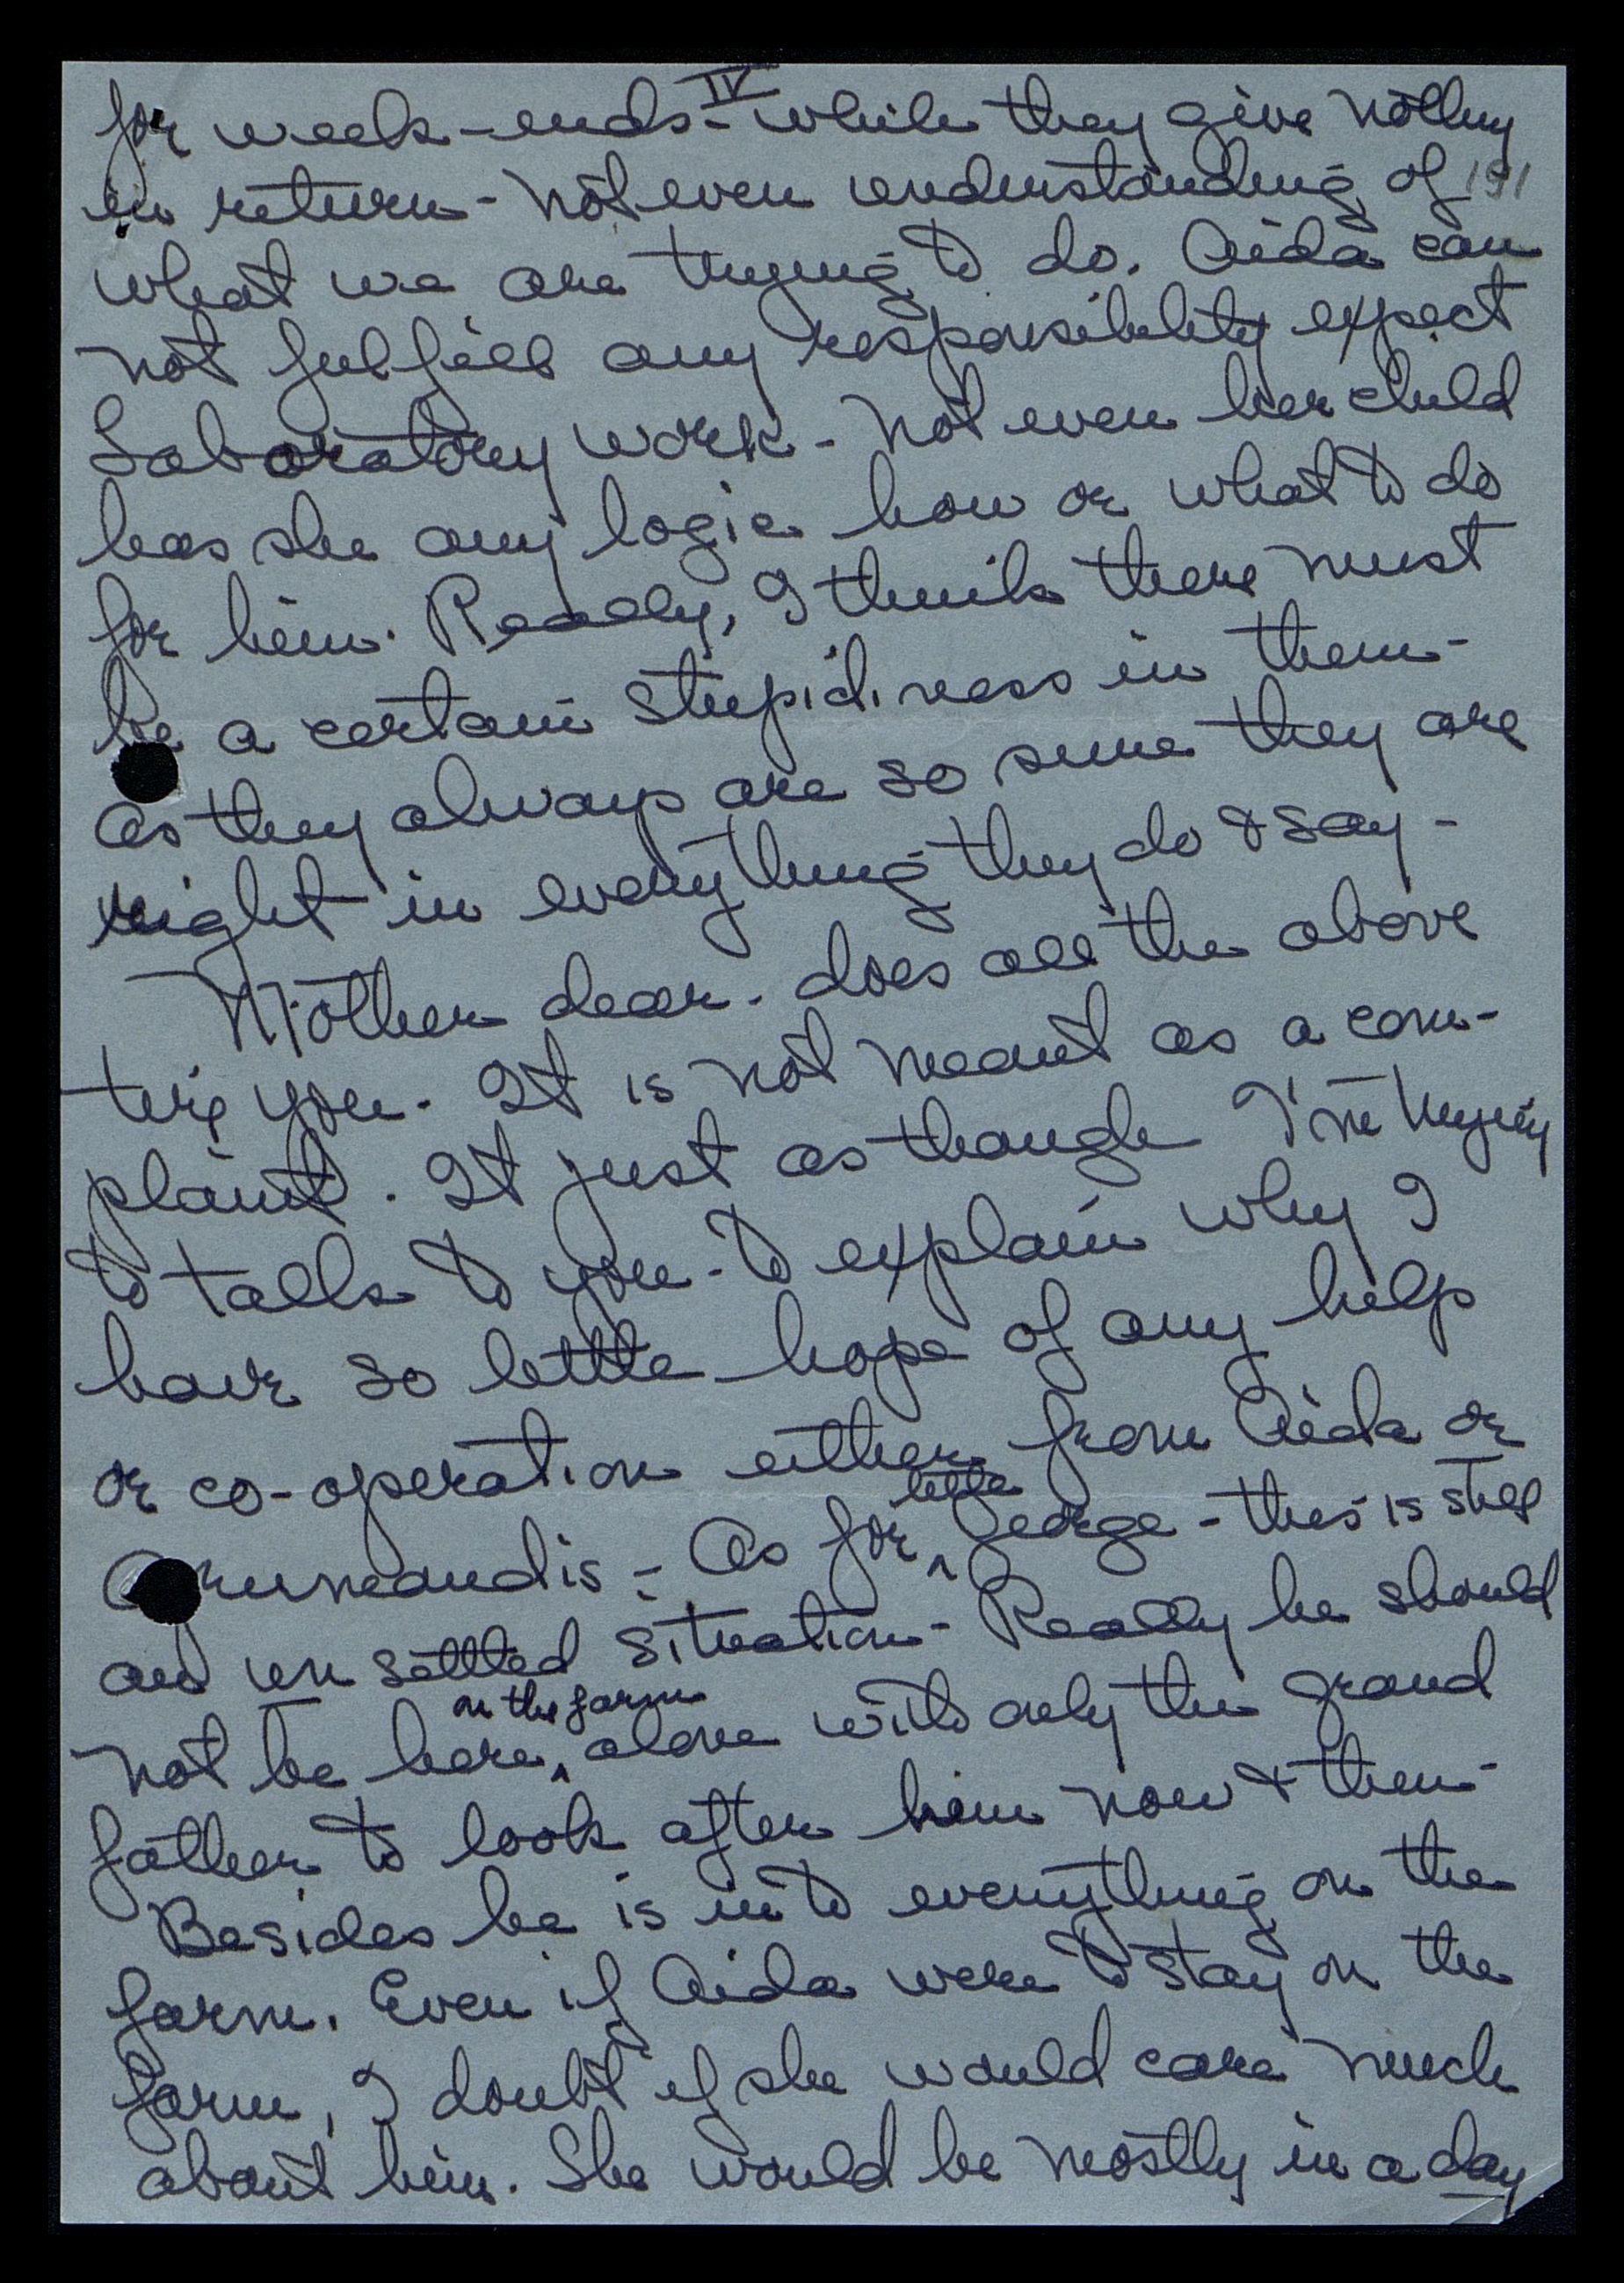 IV
for week-ends - while they give nothing
in return - not even understanding of 191
what we are trying to do. Aida can
not fulfill any responsibility expect
Laboratory work - not even her child
has she any logic how or what to do
for him. Really, I think there must
be a certain stupidiness in them -
as they always are so sure they are
right in everything they do & say -
Mother dear - does all the above
tire you. It is not meant as a com-
plaint. It just as though I'm trying
to talk to you - to explain why I
have so little hope of any help
or co-operation either from Aida or
Arumandis - As for little George - this is still
an un settled situation - Really he should
not be here on the farm alone with only the grand
father to look after him now & then -
Besides he is into everything on the
farm. Even if Aida were to stay on the
farm, I doubt if she would care much
about him. She would be mostly in a day